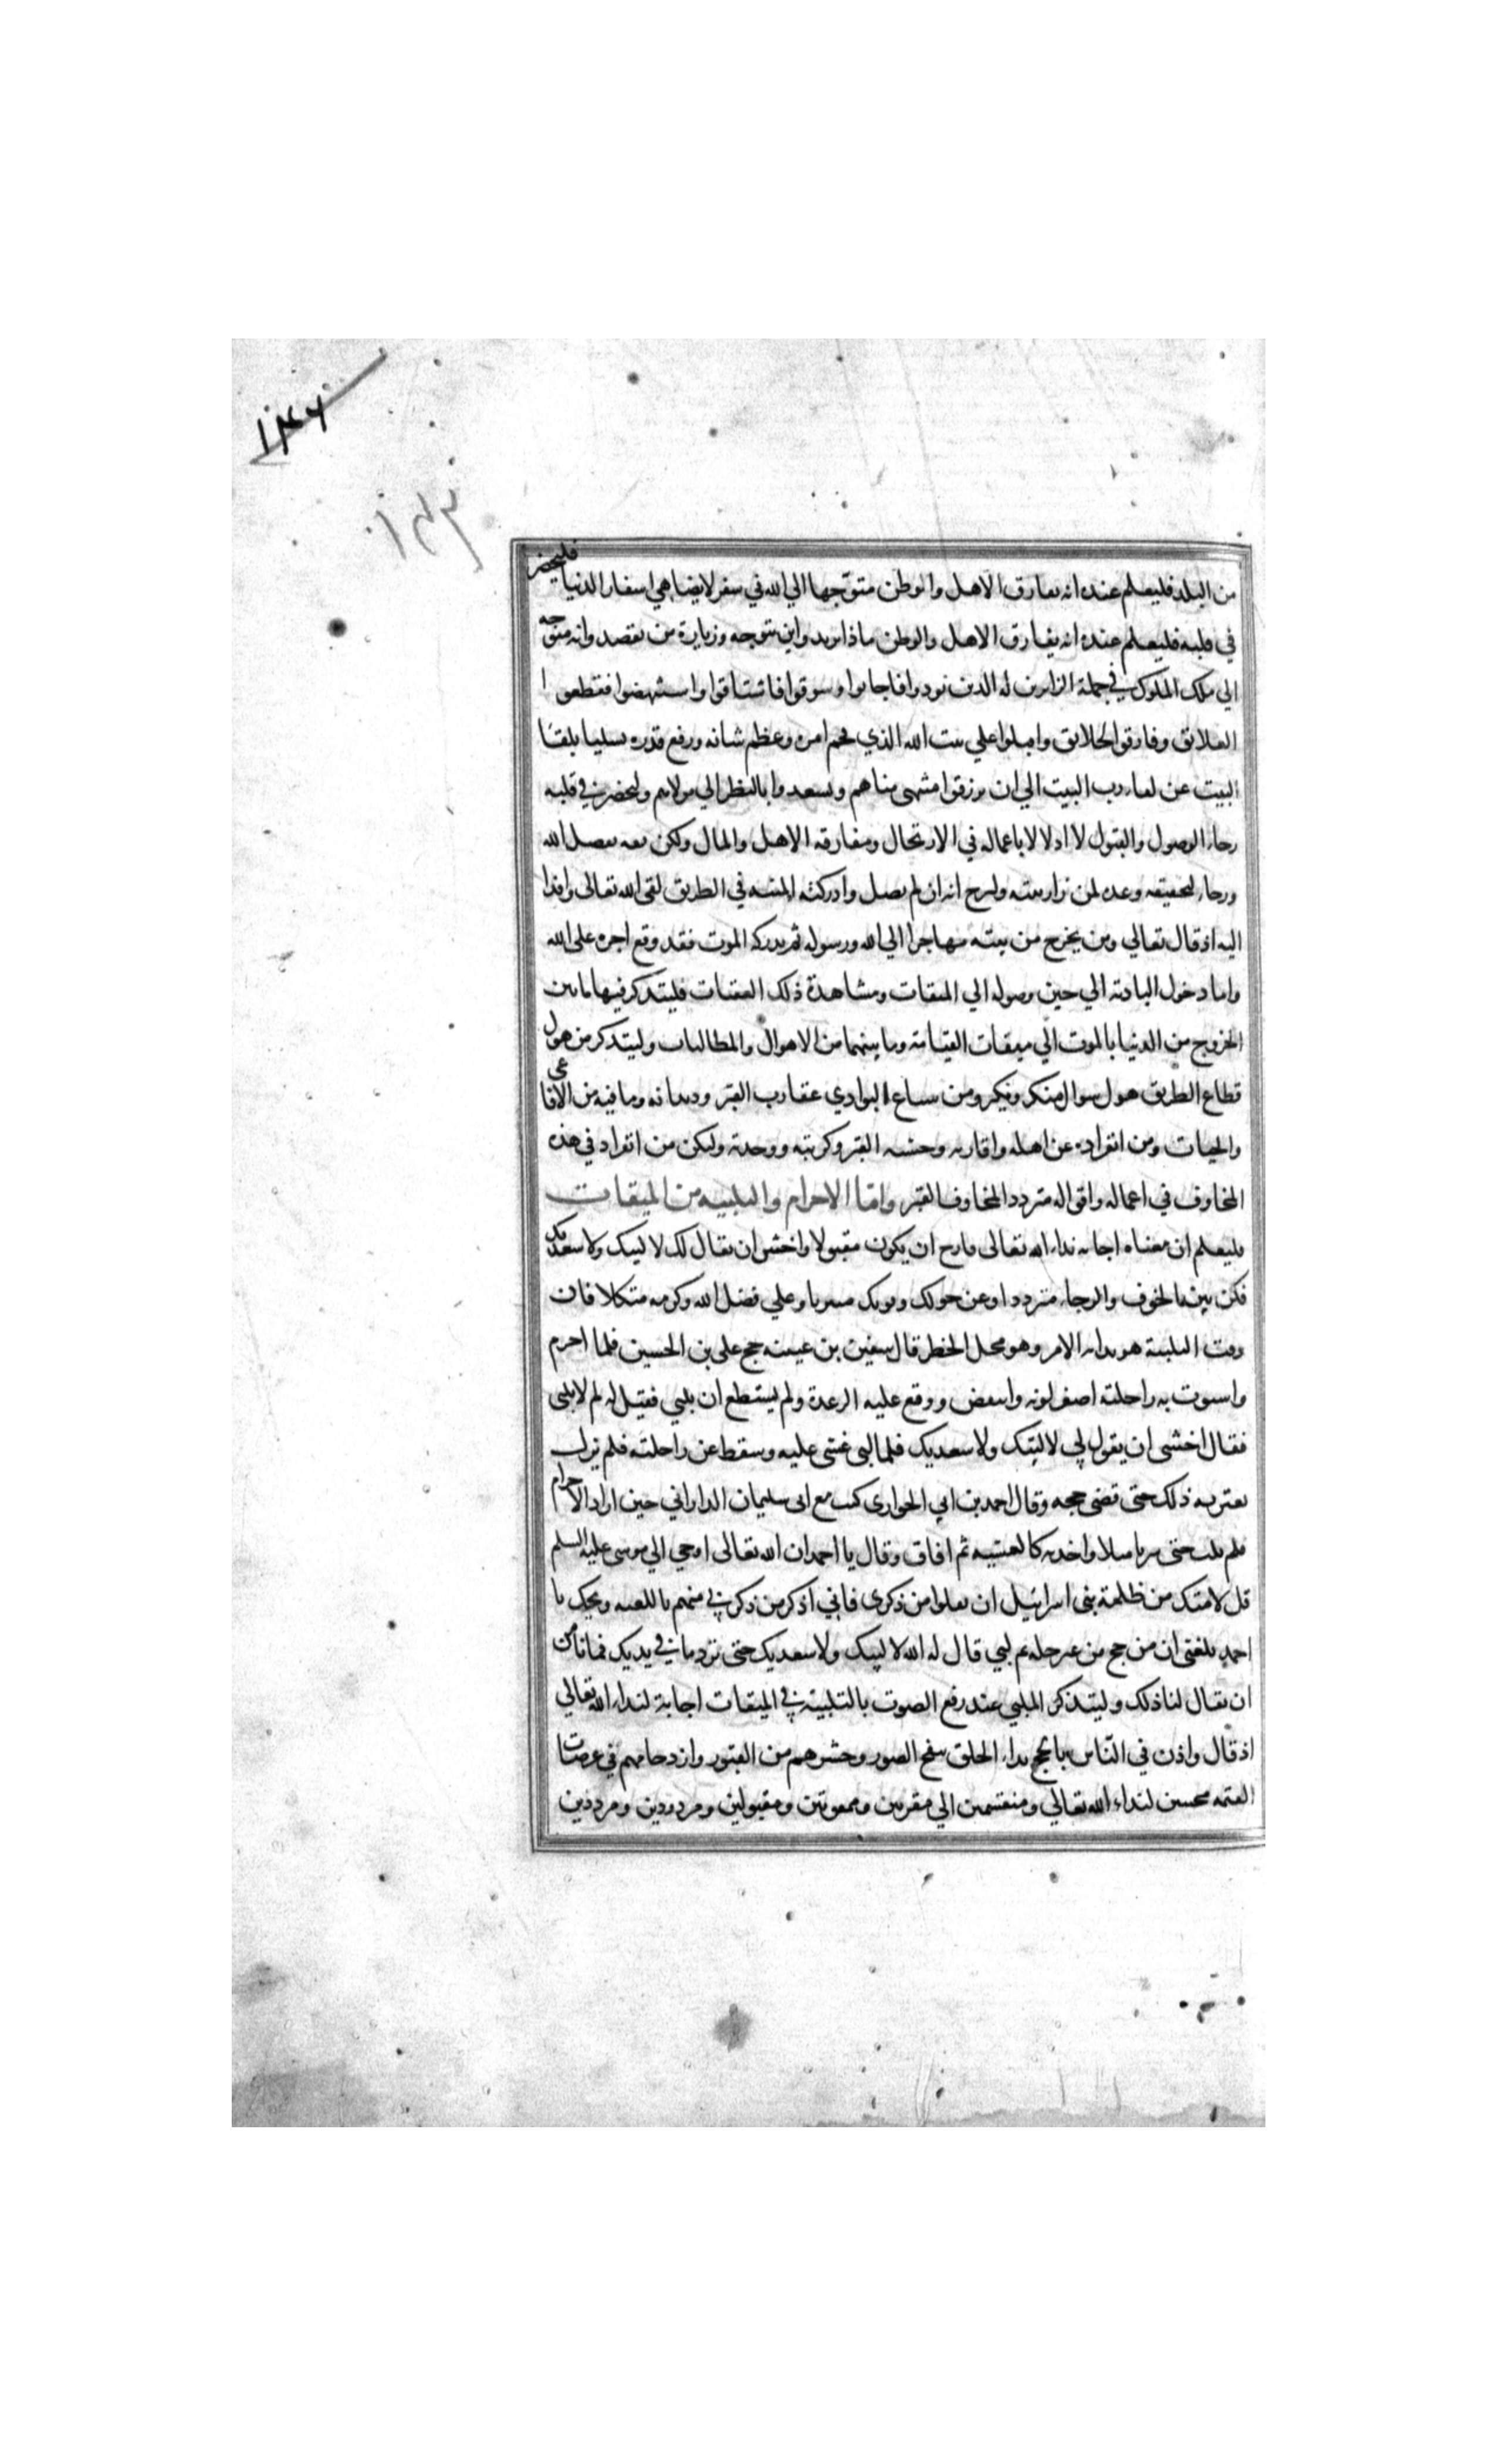 ١٤٦
١٤٣
من البلد فليعلم عنده انه يفارق الاهل والوطن متوجها الي الله في سفر لا يضاهي اسفار الدنيا فليحضر
في قلبه فليعلم عنده انه يفارق الاهل والوطن ماذا يريد واين يتوجه وزيارة من يقصد وانه متوجه
الي ملك الملوك في جملة الزايرين له الذين نودوا فاجابوا وسوقوا فاشتاقوا واستنهضوا فقطعوا
العلايق وفارقوا الخلايق واقبلوا علي بيت الله الذي فخم امره وعظم شانه ورفع قدره تسليا بلقاء
البيت عن لقاء رب البيت الي ان يرزقوا منتهى مناهم ويسعدوا بالنظر الي مولاهم وليحضر في قلبه
رجاء الوصول والقبول لا ادلالا باعماله في الارتحال ومفارقة الاهل والمال ولكن ثقه بفضل الله
ورجاء لتحقيقه وعده لمن زار بيته وليرج انه ان لم يصل وادركته المنيه في الطريق لقى الله تعالى وافدا
اليه اذ قال تعالي ومن يخرج من بيته مهاجرا الي الله ورسوله ثم يدركه الموت فقد وقع اجره على الله
واما دخول البادية الي حين وصوله الي الميقات ومشاهدة ذلك العقبات فليتذكر فيها ما بين
الخروج من الدنيا بالموت الي ميقات القيامة وما بينهما من الاهوال والمطالبات وليتذكر من هول
قطاع الطريق هول سوال منكر ونكير ومن سباع البوادي عقارب القبر وديدانه وما فيه من الافاعي
والحيات ومن انفراده عن اهله واقاربه وحشة القبر وكربته ووحدته وليكن من انفراد في هذه
المخاوف في اعماله واقواله متردد المخاوف القبر واما الاحرام والتلبيه من الميقات
فليعلم ان معناه اجابه نداء الله تعالى فارج ان يكون مقبولا واخش ان يقال لك لا لبيك ولا سعديك
فكن بين الخوف والرجاء مترددا وعن حولك وقوتك متبريا وعلي فضل الله وكرمه متكلا فان
وقت التلبية هو بداية الامر وهو محل الخطر قال سفين بن عيينه حج علي بن الحسين فلما احرم
واستوت به راحلته اصفر لونه وانتفض ووقع عليه الرعدة ولم يستطع ان يلبي فقيل له لم لا يلبى
فقال اخشى ان يقول لي لا لبيك ولا سعديك فلما لبى غشى عليه وسقط عن راحلته فلم يزل
يعتريه ذلك حتى قضى حجه وقال احمد بن ابي الحوارى كنت مع ابى سليمان الداراني حين اراد الاحرام
فلم يلب حتى سرنا ميلا واخذته كالغشيه ثم افاق وقال يا احمد ان الله تعالى اوحي الي موسى عليه السلم
قل لامتك من ظلمة بنى اسرائيل ان يقلوا من ذكرى فاني اذكر من ذكرني منهم باللعنه ويحك يا
احمد بلغنى ان من حج من غير حله ثم لبي قال له الله لا لبيك ولا سعديك حتى ترد ما في يديك فما نامن
ان يقال لنا ذلك وليتذكر الملبي عند رفع الصوت بالتلبية في الميقات اجابة لنداء الله تعالي
اذ قال واذن في الناس بالحج نداء الخلق بنفخ الصور وحشرهم من القبور وازدحامهم في عرصات
القيمه مجيبين لنداء الله تعالي ومنقسمين الي مقربين وممقوتين ومقبولين ومردودين ومرددين